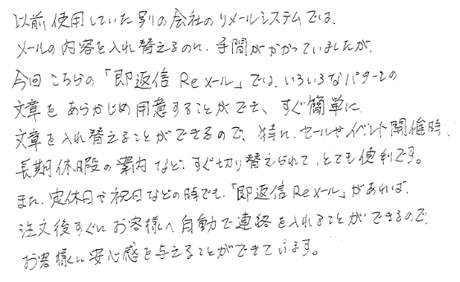 以前使用していた別の会社のリメールシステムでは、
メールの内容を入れ替えるのに、手間がかかっていましたが、
今回こちらの「即返信Reメール」では、いろいろなパターンの
文章をあらかじめ用意することができ、すぐ簡単に
文章を入れ替えることができるので、特に、セールやイベント開催時、
長期休暇の案内など、すぐ切り替えられて、とても便利です。
また、定休日や祝日などの時でも、「即返信Reメール」があれば、
注文後すぐにお客様へ自動で連絡を入れることができるので、
お客様に安心感を与えることができています。